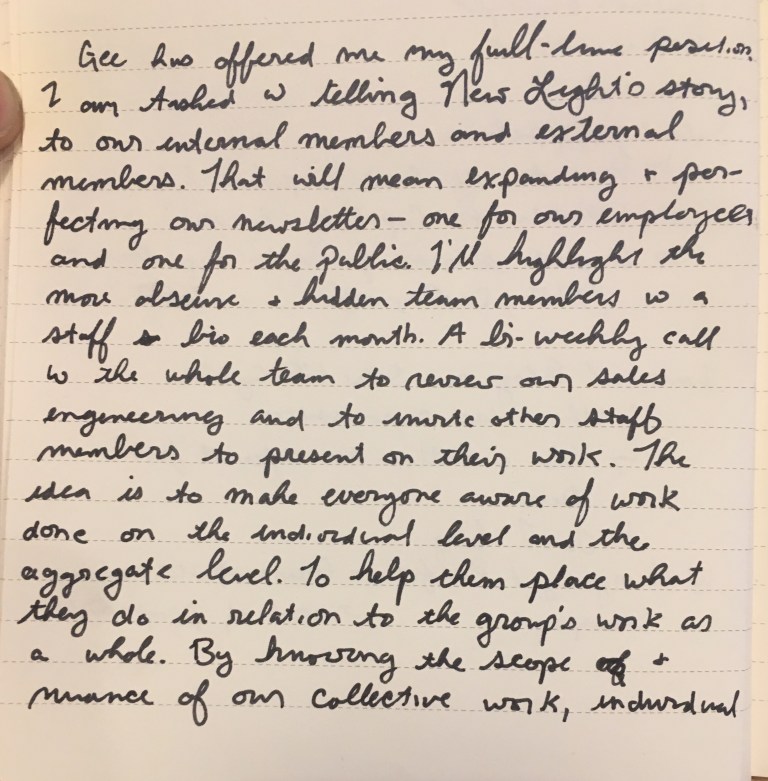 Gee has offered me my full-time position.
I am tasked w telling New Light's story,
to our internal members and external
members. That will mean expanding + per-
fecting our newsletter - one for our employees
and one for the public. I'll highlight the
more obscure + hidden team members w a
staff bio each month. A bi-weekly call
w the whole team to review our sales
engineering and to invite other staff
members to present on their work. The
idea is to make everyone aware of work
done on the individual level and the
aggregate level. To help them place what
they do in relation to the group's work as
a whole. By knowing the scope +
nuance of our collective work, individual